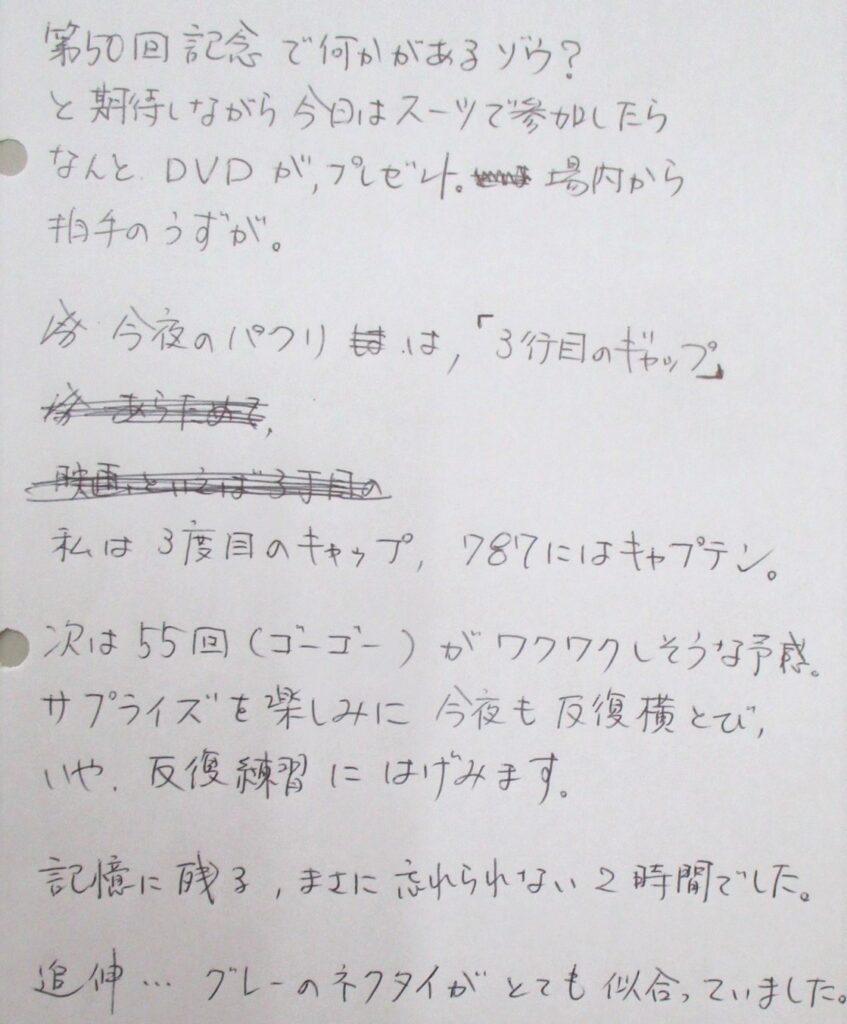 第50回記念で何かがあるゾウ?
と期待しながら今日はスーツで参加したら
なんと、DVDが,プレゼント。場内から
拍手のうずが。
今夜のパクリは,「3行目のギャップ」
あらためて,
映画といえば3丁目の
私は3度目のキャップ, 787にはキャプテン。
次は55回(ゴーゴー)がワクワクしそうな予感。
サプライズを楽しみに今夜も反復横とび,
いや、反復練習にはげみます。
記憶に残る,まさに忘れられない2時間でした。
追伸…グレーのネクタイがとても似合っていました。